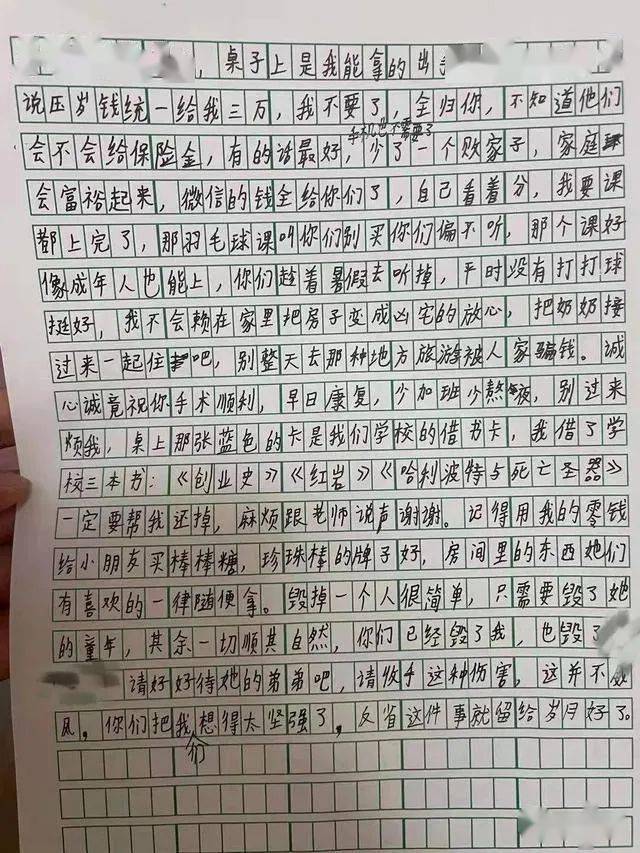 ，桌子上是我能拿的出
说压岁钱统一给我三万，我不要了，全归你，不知道他们
手机也不需要了
会不会给保险金，有的话最好，少了一个败家子，家庭
会富裕起来，微信的钱全给你们了，自己看着分，我要课
都上完了，那羽毛球课叫你们别买你们偏不听，那个课好
像成年人也能上，你们趁着暑假去听掉，平时没有打打球
挺好，我不会赖在家里把房子变成凶宅的放心，把奶奶接
过来一起住吧，别整天去那种地方旅游被人家骗钱。诚
心诚竟祝你手术顺利，早日康复，少加班少熬夜，别过来
烦我，桌上那张蓝色的卡是我们学校的借书卡，我借了学
校三本书：《创业史》《红岩》《哈利波特与死亡圣器》
一定要帮我还掉，麻烦跟老师说声谢谢。记得用我的零钱
给小朋友买棒棒糖，珍珠棒的牌子好，房间里的东西她们
有喜欢的一律随便拿。毁掉一个人很简单，只需要毁了她
的童年，其余一切顺其自然，你们已经毁了我，也毁了
请好好待她的弟弟吧，请收手这种伤害，这并不威
风，你们把我们想得太坚强了，反省这件事就留给岁月好了。